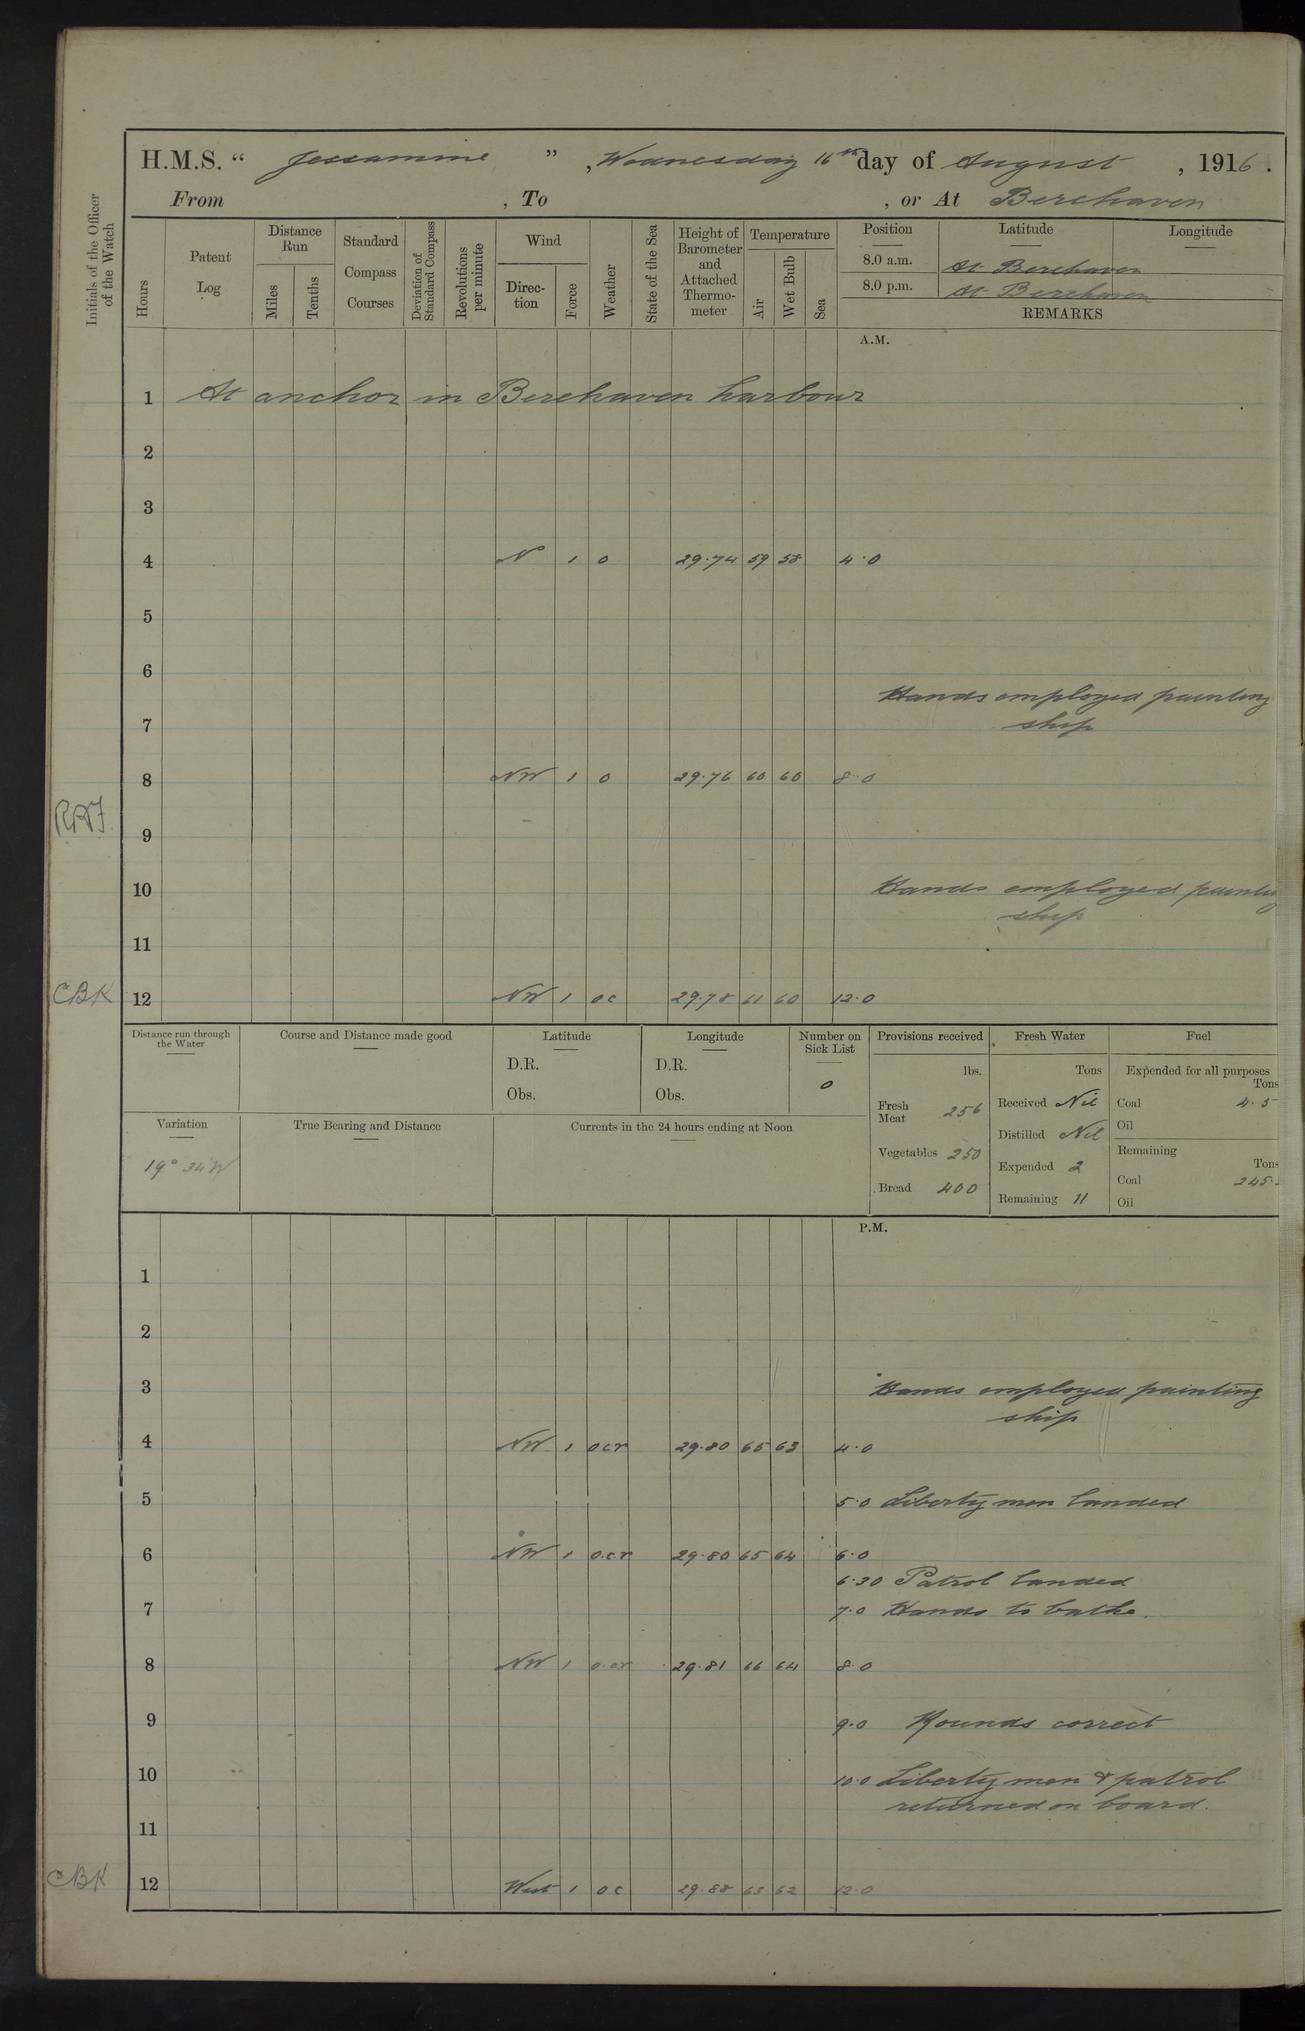 H.M.S. “ Jessamine ” , Wednesday 16th day of August , 1916 .
From , To , or At Berehaven
Initials of the Officer of the Watch
Hours
Patent Log
Distance Run
Miles
Tenths
Standard Compass Courses
Deviation of Standard Compass
Revolutions per minute
Wind
Direc-tion
Force
Weather
State of the Sea
Height of Barometer and Attached Thermo-meter
Temperature
Air
Wet Bulb
Sea
Position Latitude Longitude
8.0 a.m. At Berehaven
8.0 p.m. At Berehaven
REMARKS
A.M.
1 At anchor in Berehaven harbour
2
3
4 N 1 o 29.74 59 58 4.0
5
6
Hands employed painting
7 ship
8 NW 1 o 29.76 60 60 8.0
RAF
9
10 Hands employed painting
ship
11
CBK 12 NW 1 oc 29.78 61 60 12.0
Distance run through the Water
Course and Distance made good
Latitude
D.R.
Obs.
Longitude
D.R.
Obs.
Number on Sick List
0
Provisions received
lbs.
Fresh Meat 256
Vegetables 250
Bread 400
Fresh Water
Tons
Received Nil
Distilled Nil
Expended 2
Remaining 11
Fuel
Expended for all purposes
Tons
Coal 4.5
Oil
Remaining
Tons
Coal 245.
Oil
Variation
19° 34'W
True Bearing and Distance
Currents in the 24 hours ending at Noon
P.M.
1
2
3 Hands employed painting
ship
4 NW 1 ocr 29.80 65 63 4.0
5 5.0 Liberty men landed
6 NW 1 o.c.r 29.80 65 64 6.0
6.30 Patrol landed
7 7.0 Hands to bathe.
8 NW 1 o.cr 29.81 66 64 8.0
9 9.0 Rounds correct
10 10.0 Liberty men & patrol
returned on board.
11
CBK 12 West 1 oc 29.88 63 62 12.0